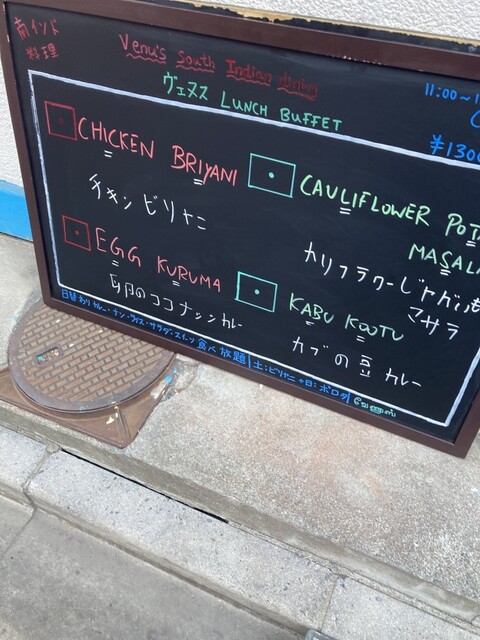 南インド
料理
Venu's South Indian Dining
ヴェヌス LUNCH BUFFET
11:00~1
¥1300
CHICKEN BRIYANI
チキンビリヤニ
CAULIFLOWER POT
MASALA
カリフラワーじゃがいも
マサラ
EGG KURUMA
卵のココナッツカレー
KABU KOOTU
カブの豆カレー
日替わりカレー・ナン・ライス・サラダ・スイーツ食べ放題 土:ビリヤニ 日:ポロタ